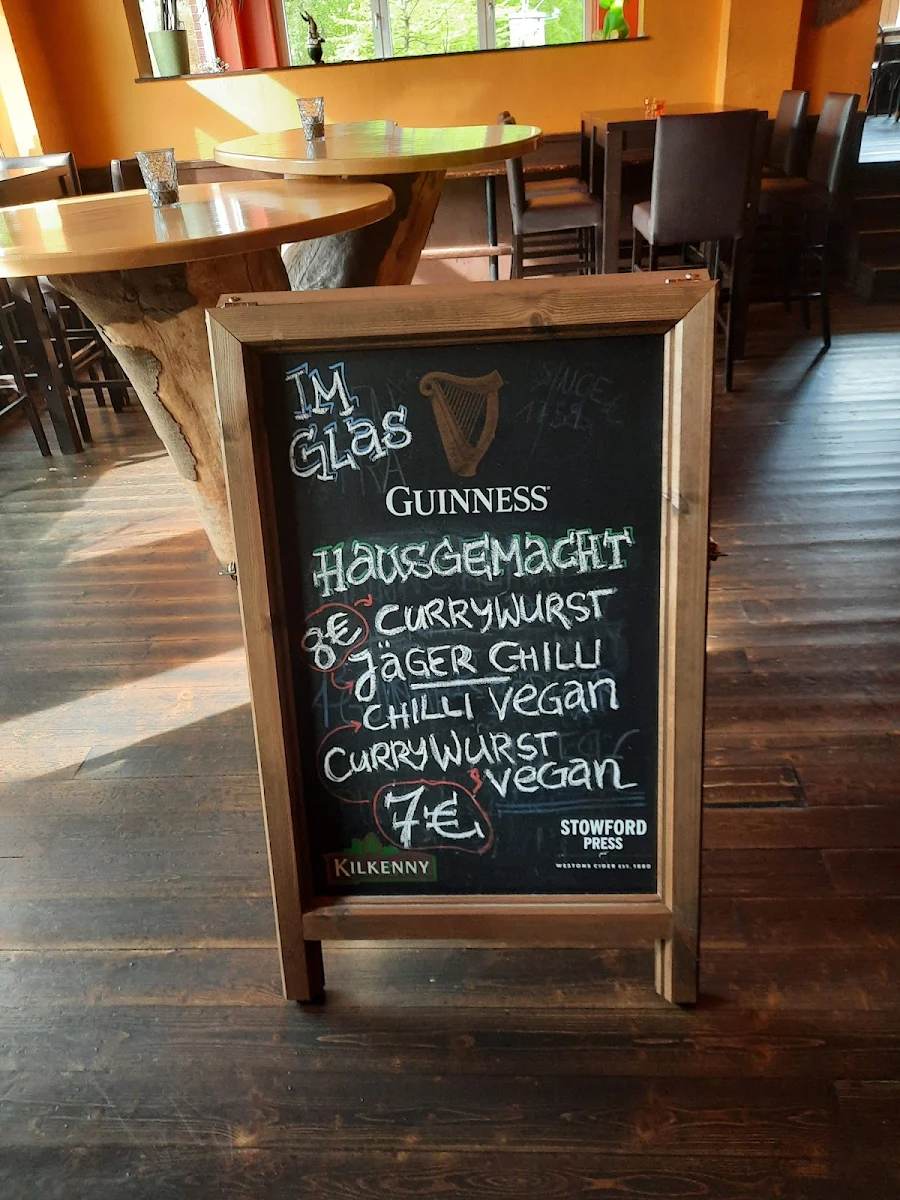 IM
GLAS
SINCE
1759
GUINNESS
HAUSGEMACHT
8€ CURRYWURST
JÄGER CHILLI
CHILLI VEGAN
CURRYWURST
VEGAN
7€
KILKENNY
STOWFORD
PRESS
WESTONS CIDER EST. 1880